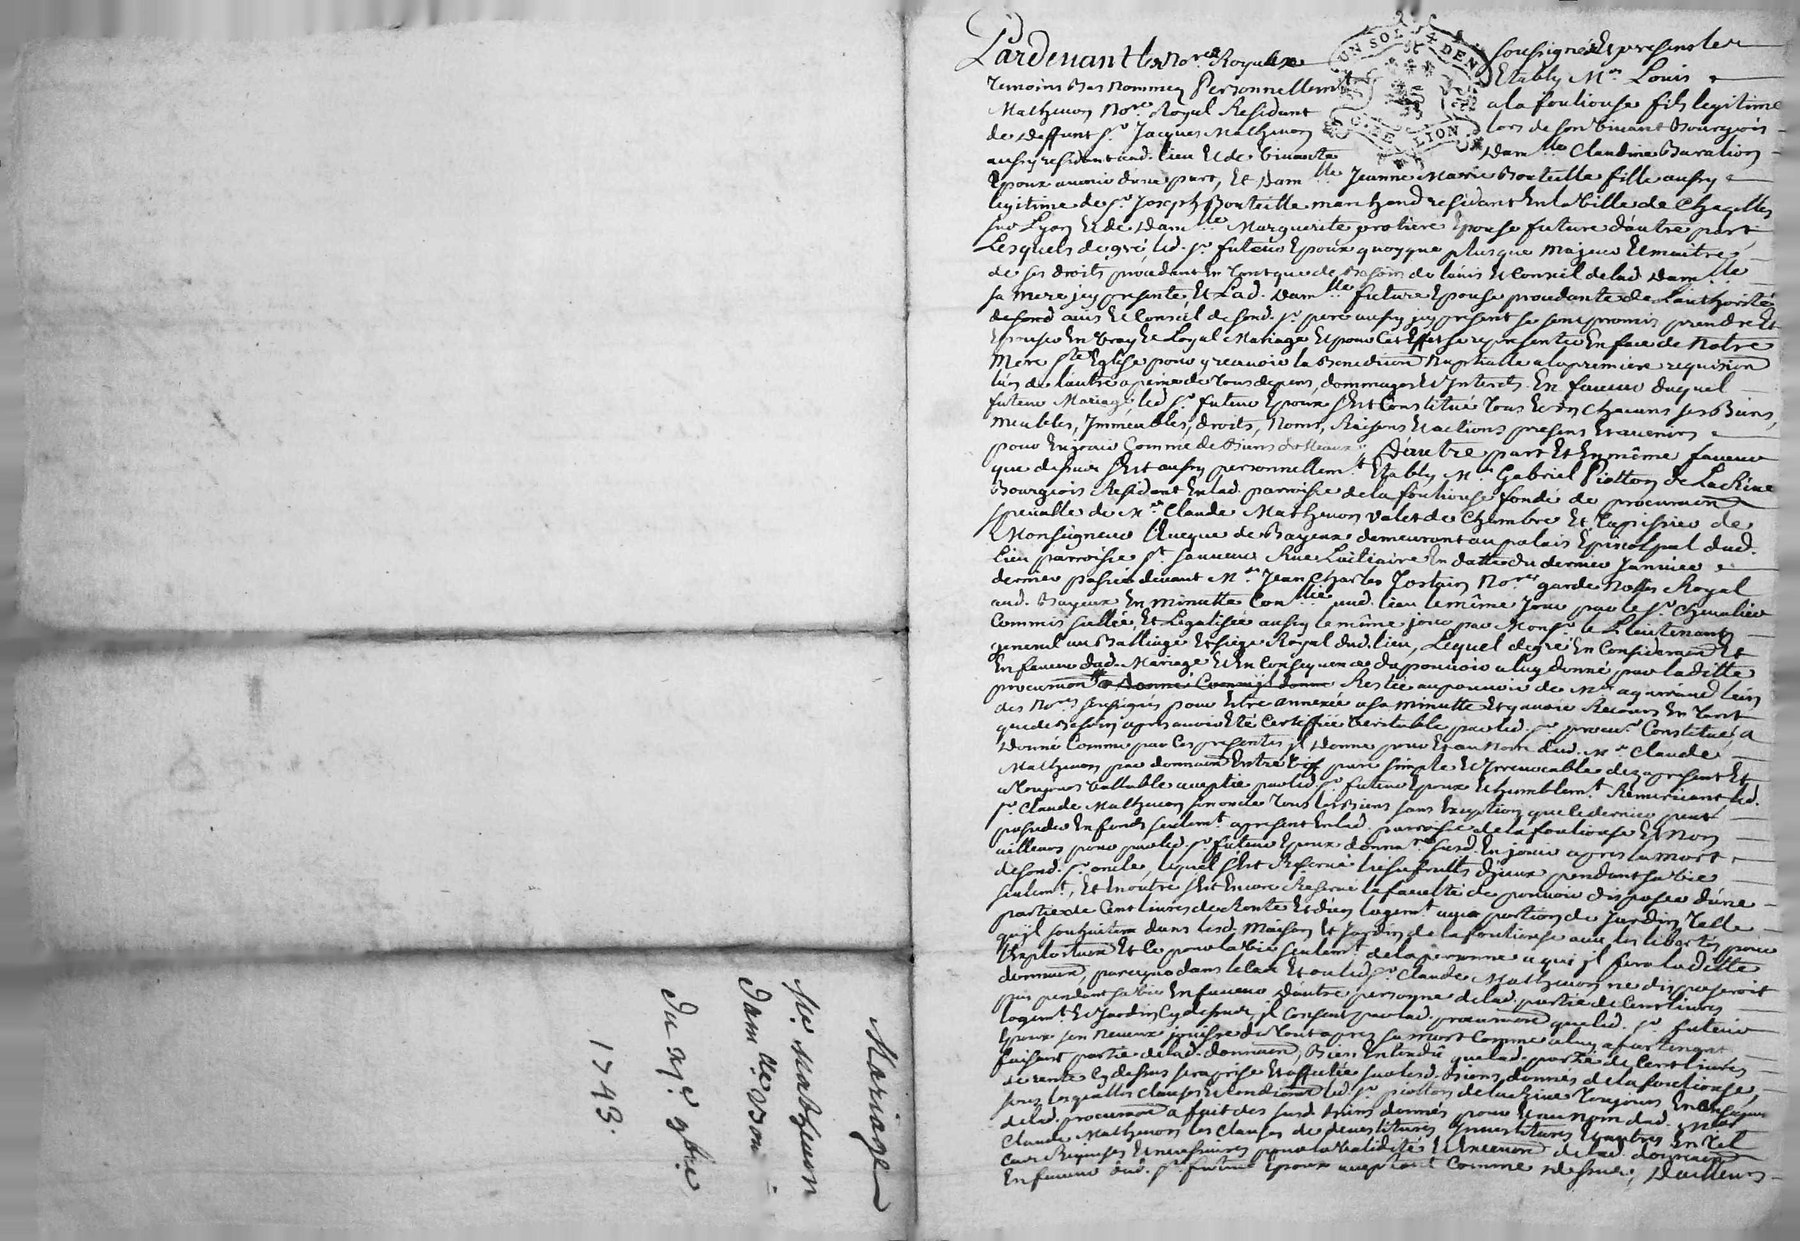 Mariage
Mr. Mathevon
Dam.lle Bou -
Du XI.e 9bre
1743.
UN SOL 4 DEN
G.NE LION
Pardevant les No.res Royaux soussignés Et presens les
temoins Bas nommez Personnellem.t Etably M.re Louis
Mathevon No.re Royal Residant a la fouliouse fils legitime
de deffunt s.r Jacques Mathevon lors de son vivant Bourgeois
aussy residant aud. lieu Et de vivante Dam.lle Claudine Baralion
Epoux avenir d'une part, Et Dam.lle Jeanne Marie Bouteille fille aussy
legitime de s.r Joseph Bouteille marchand residant En la Ville de Chazelles
sur Lyon Et de Dam.lle Marguerite protiere Epouse future d'autre part,
Lesquels de gré, led. s.r futeur Epoux quoyque plusque majeur Et maitre
de ses droits procedant En tant que de Besoin de l'avis Et Conseil de lad. Dam.lle
sa mere icy presente, Et Lad. Dam.lle future Epouse procedante de L'authorité,
de sond avis Et Conseil de sond. s.r pere aussy icy present se sont promis prendre Et
Epouser En vray Et Loyal Mariage Et pour Cet Effet se representer En face de Notre
Mere s.te Eglise pour y recevoir la Benediction Nuptialle a la premiere requisition
l'un de l'autre a peine de tous depens, dommages Et Interets. En faveur duquel
futeur Mariage led. s.r futeur Epoux s'est Constitué tous Et un chacuns ses Biens,
meubles, Immeubles, droits, Noms, Raisons Et actions presens Et avenirs
pour En jouir Comme de Biens dotteaux; D'autre part Et En même faveur
que dessus s'est aussy personnellem.t Etably M.r Gabriel Piotton de La
Bourgeois Residant En lad. parroisse de la fouliouse fondé de procuration
specialle de M.re Claude Mathevon valet de Chambre Et tapissier de
Monseigneur l'Eveque de Bayeux demeurant au palais Episcopal dud.
lieu parroisse s.t sauveur Rue En datte du dernier Janvier
dernier passée devant M.re Jean Charles No.re garde Nottes Royal
aud. Bayeux En minutte Con.llée aud. lieu le même Jour par le s.r Chevalier
Commis scellée Et Legalisée aussy le même jour par Mons.r le Lieutenant
general au Balliage Et siege Royal dud. lieu, Lequel de gré En Consideration Et
En faveur dud. Mariage Et En Consequence du pouvoir a luy donné par la ditte
procuration Restée au pouvoir de l'un
des No.res soussignés pour Etre annexée a sa minutte Et y avoir Recours En tant
que de Besoin après avoir Eté Certiffiée veritable par led. s.r procu.r Constitué, a
donné Comme par Ces presentes il Donne pour Et au Nom dud. M.re Claude
Mathevon par donnation Entre vif pure simple Et Irrevocable dez a present Et
a toujours vallable acceptée par led. s.r futeur Epoux Et humblem.t Remerciant led.
s.r Claude Mathevon son oncle tous les Biens sans Exeption que le dernier peut
posseder En fonds seulem.t a present En lad. parroisse de la fouliouse Et Non
ailleurs pour par led. s.r futeur Epoux donnat.re susd. En jouir apres la mort
de sond. s.r oncle lequel s'est Reservé les usufruits d'iceux pendant sa vie
seulem.t, Et En outre s'est Encore Reservé la faculté de pouvoir disposer d'une
partie de Cent livres de Rente Et d'un logem.t avec portion de Jardin telle
qu'il souhaitera dans lesd. Maison Et Jardin de la fouliouse avec les libertés pour
l'Exploitation Et Ce pour la vie seulem.t de la personne a qui il fera la ditte
donnation, parcequo dans le Cas Et ou led. s.r Claude Mathevon ne disposeroit
pas pendant sa vie En faveur d'autre personne de lad. partie de Cent livres
logem.t Et Jardin Cy dessus, il Consent par lad. procuration que led. s.r futeur
Epoux son Neveux jouisse du tout apres sa mort Comme a luy apartenant
faisant partie de lad. donnation, Bien Entendû que lad. partie de Cent livres
de rente Cy dessus sera prise Et affectée sur lesd. Biens donnés de la fouliouse,
sous lesquelles Clauses Et Conditions led. s.r piotton de toujours En
de lad. procuration a fait des susd. biens donnés pour Et au nom dud. s.r
Claude Mathevon les Clauses de devestitures Investitures Et autres En tel
Cas Requises Et necessaires pour la validité Et de lad. donnation
En faveur dud. s.r futeur Epoux acceptant Comme dessus, D'ailleurs